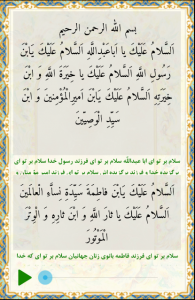 بسم الله الرحمن الرحیم
اَلسَّلامُ عَلَیْكَ یا اَباعَبْدِاللَّهِ اَلسَّلامُ عَلَیْكَ یَابْنَ
رَسُولِ اللَّهِ اَلسَّلامُ عَلَیْكَ یا خِیَرَةَ اللَّهِ وَ ابْنَ
خِیَرَتِهِ اَلسَّلامُ عَلَیْكَ یَابْنَ اَمیرِالْمُؤْمِنینَ وَ ابْنَ
سَیِّدِ الْوَصِیّینَ
سلام بر تو ای ابا عبدالله سلام بر تو ای فرزند رسول خدا سلام بر تو ای
برگزیده خدا و فرزند برگزیده اش سلام بر تو ای فرزند امیر
اَلسَّلامُ عَلَیْكَ یَابْنَ فاطِمَةَ سَیِّدَةِ نِساَّءِ الْعالَمینَ
اَلسَّلامُ عَلَیْكَ یا ثارَ اللَّهِ وَ ابْنَ ثارِهِ وَ الْوِتْرَ
الْمَوْتُورَ
سلام بر تو ای فرزند فاطمه بانوی زنان جهانیان سلام بر تو ای که خدا